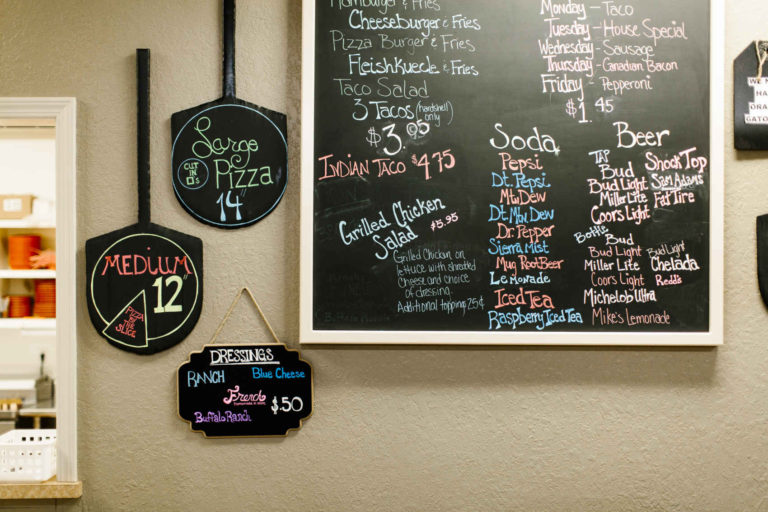 Hamburger & Fries
Cheeseburger & Fries
Pizza Burger & Fries
Fleishkuele & Fries
Taco Salad
3 Tacos (hardshell only)
$3.95
INDIAN TACO $4.75
Grilled Chicken
Salad $5.95
Grilled Chicken on
lettuce with shredded
Cheese and choice
of dressing.
Additional topping 25¢
Monday - Taco
Tuesday - House Special
Wednesday - Sausage
Thursday - Canadian Bacon
Friday - Pepperoni
$1.45
Soda
Pepsi
Dt. Pepsi
Mt. Dew
Dt. Mtn Dew
Dr. Pepper
Sierra Mist
Mug RootBeer
Lemonade
Iced Tea
Raspberry Iced Tea
Beer
TAP
Bud
Bud Light
Miller Lite
Coors Light
Shock Top
Sam Adams
Fat Tire
Bottle
Bud
Bud Light
Miller Lite
Coors Light
Michelob Ultra
Mike's Lemonade
Bud Light
Chelada
Redd's
Large
CUT
IN
Pizza
14"
MEDIUM
12"
PIZZA
BY THE
SLICE
DRESSINGS
RANCH
Blue Cheese
French
$.50
Buffalo Ranch
WE
HA
GATO